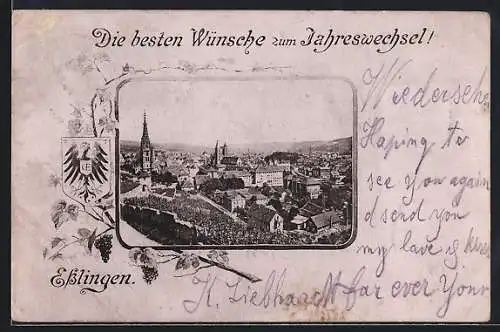 Die besten Wünsche zum Jahreswechsel!
Wiederseh
Haping to
see you again
d send you
my love & kisses
K. Liebhardt far ever Your
Eßlingen.